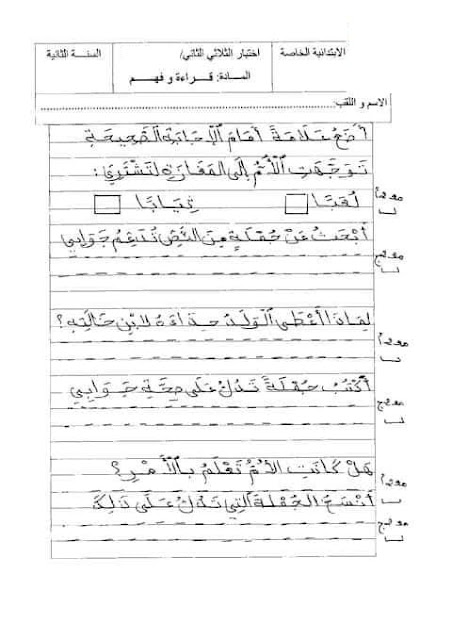 الابتدائية الخاصة
اختبار الثلاثي الثاني/
السنة الثانية
المادة: قراءة و فهم
الاسم و اللقب:
أَضَعُ عَلَامَةً أَمَامَ الْإِجَابَةِ الصَّحِيحَةِ
تَوَجَّهَتِ الْأُمُّ إِلَى الْمَغَازَةِ لِتَشْتَرِيَ:
لُعَبًا
ثِيَابًا
مع1أ
أَبْحَثُ عَنْ جُمْلَةٍ مِنَ النَّصِّ تُدَعِّمُ جَوَابِي
مع3ج
لِمَاذَا أَعْطَى الْوَلَدُ حِذَاءَهُ لِابْنِ خَالَتِهِ؟
مع2أ
أَكْتُبُ جُمْلَةً تَدُلُّ عَلَى صِحَّةِ جَوَابِي
مع3ج
هَلْ كَانَتِ الْأُمُّ تَعْلَمُ بِالْأَمْرِ؟
مع2أ
أَنْسَخُ الْجُمْلَةَ الَّتِي تَدُلُّ عَلَى ذَلِكَ
مع3ج